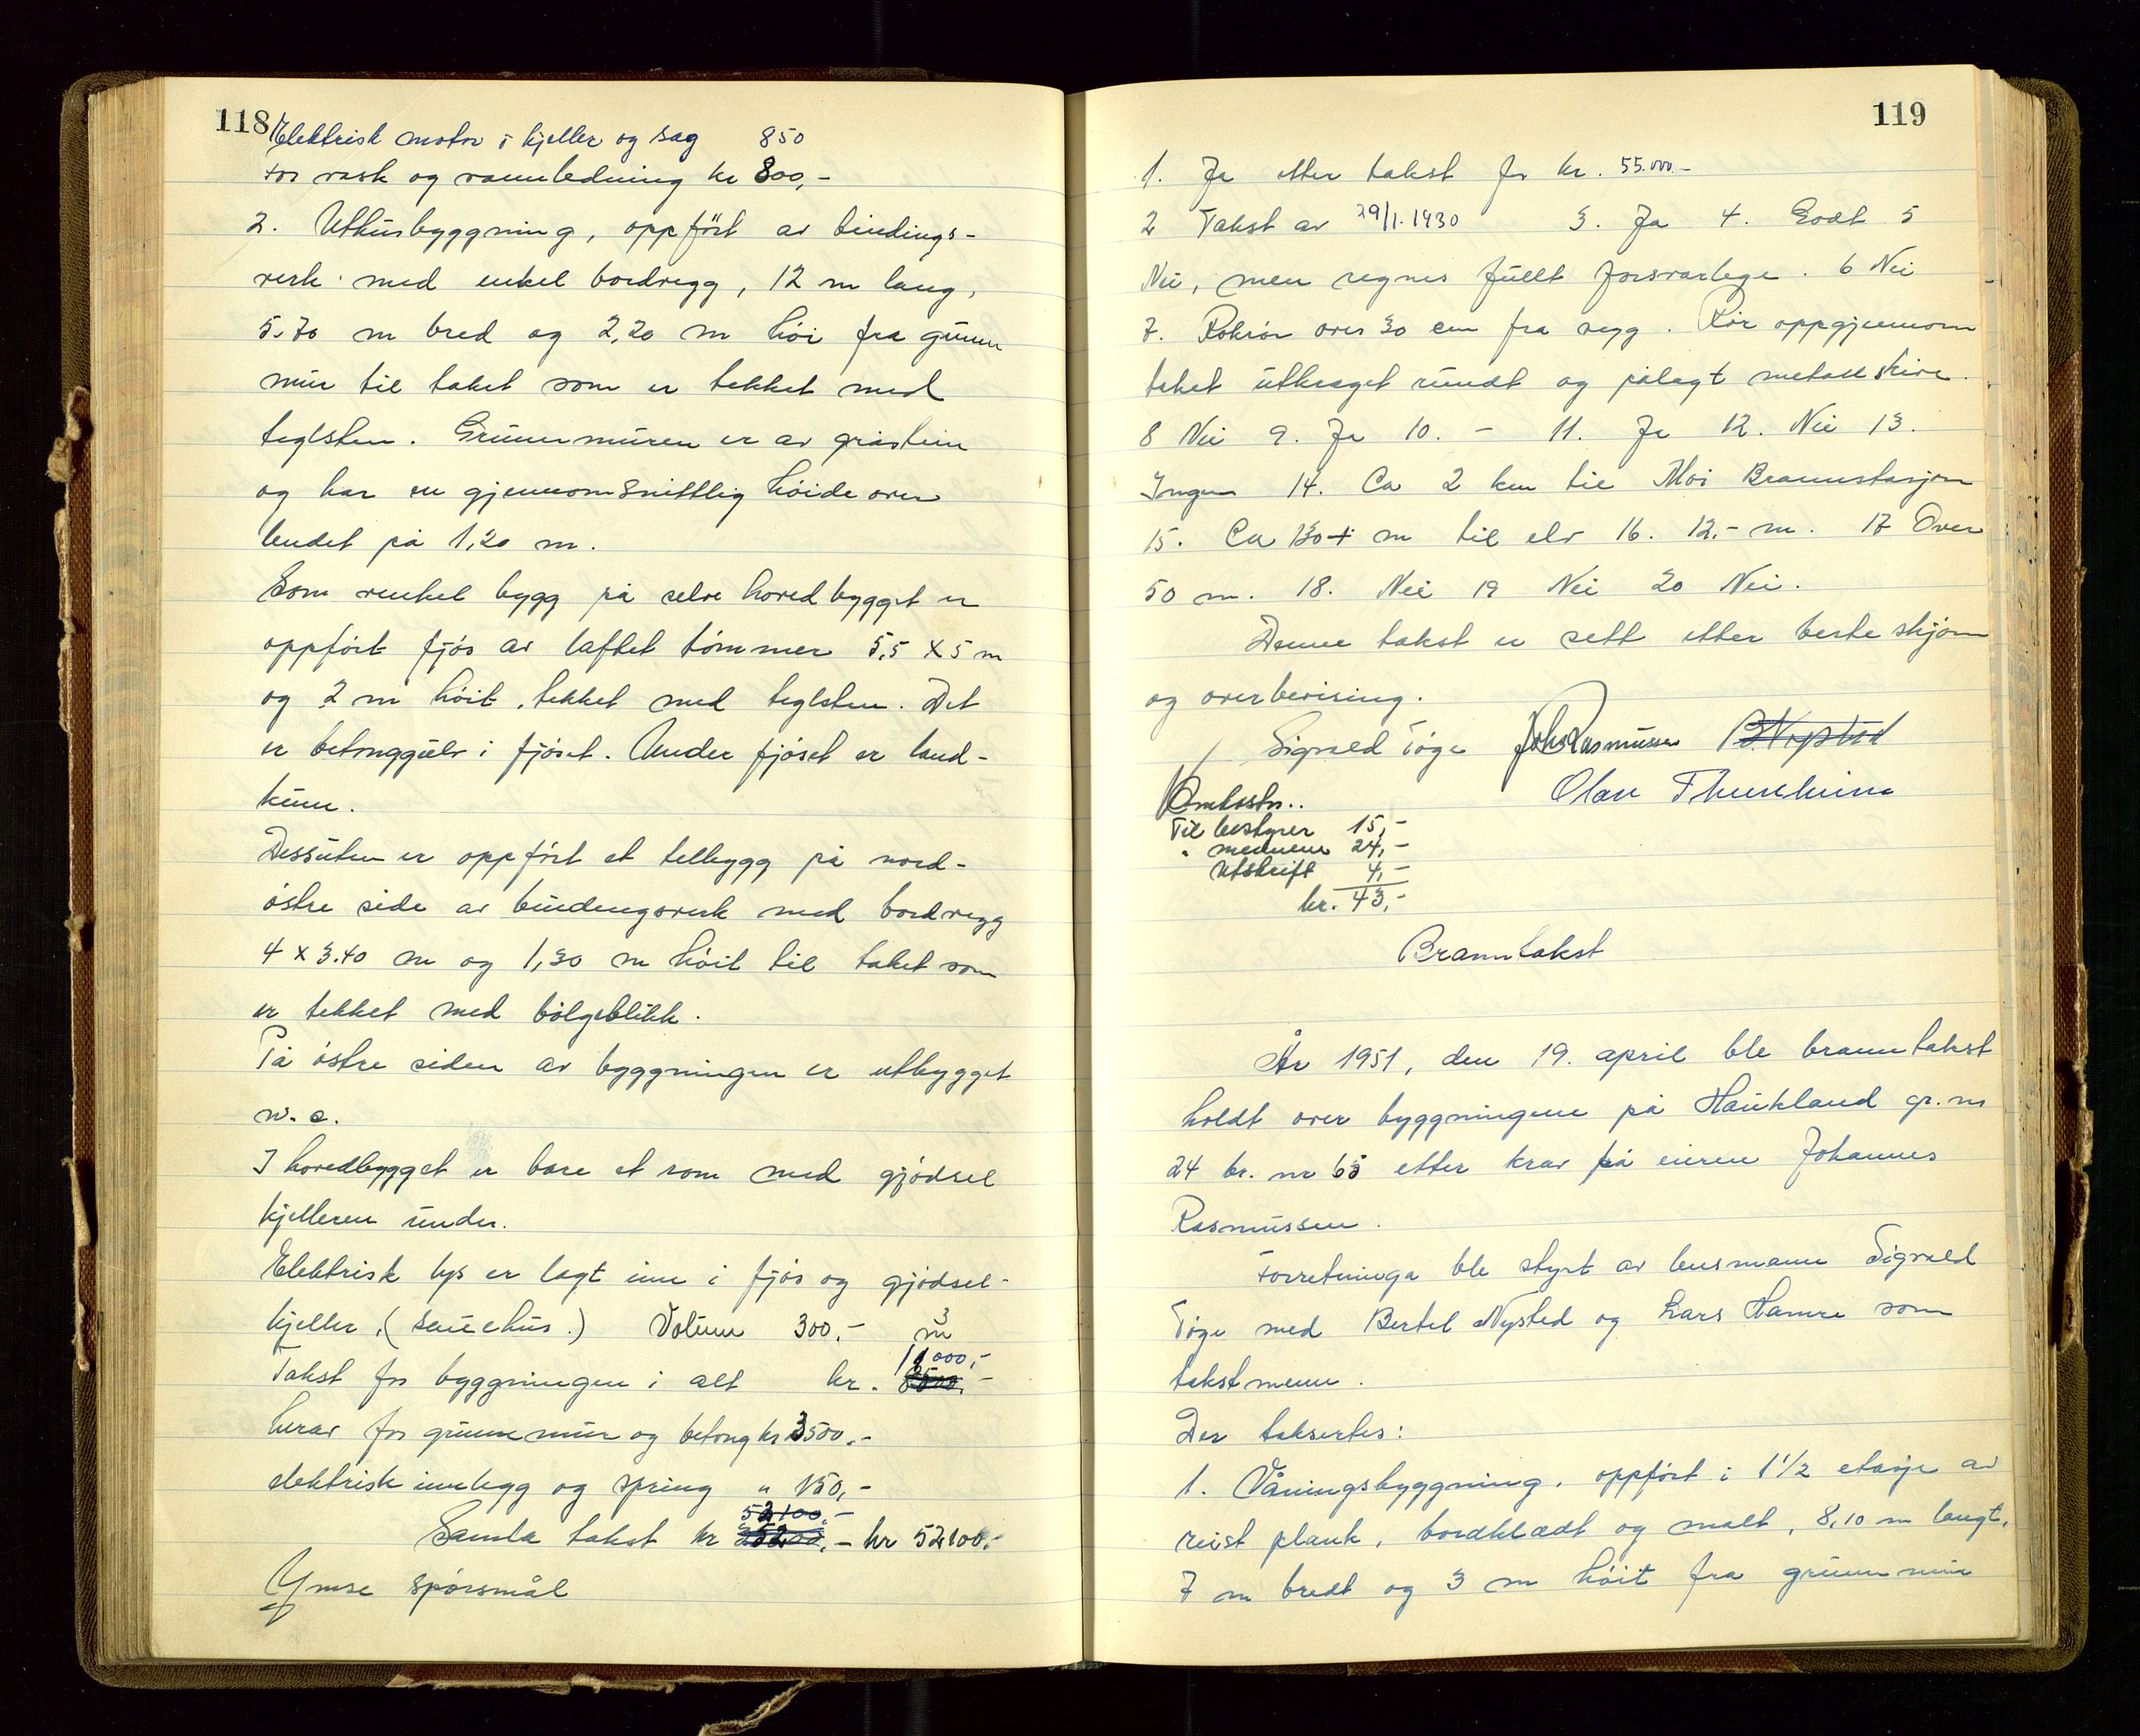 118
Elektrisk motor i kjeller og sag 850
For vask og vannledning kr 800,-
2. Uthusbyggning, oppført av bindings-
verk med enkel bordvegg, 12 m lang,
5.70 m bred og 2,20 m høi fra grunn
mur til taket som er tekket med
teglsten. Grunnmuren er av gråstein
og har en gjennomsnittlig høide over
lendet på 1,20 m.
Som vinkel bygg på selve hovedbygget er
oppført fjøs av laftet tømmer 5,5 x 5 m
og 2 m høit, tekket med teglsten. Det
er betonggulv i fjøset. Under fjøset er land-
kum.
Dessuten er oppført et tilbygg på nord-
østre side av bindingsverk med bordvegg
4 x 3.40 m og 1,30 m høit til taket som
er tekket med bølgeblikk.
På østre siden av byggningen er utbygget
w.c.
I hovedbygget er bare et rom med gjødsel
kjelleren under.
Elektrisk lys er lagt inn i fjøs og gjødsel-
kjeller, (sauehus.) Volum 300,- m³
11000,-
Takst for byggningen i alt kr. 8500,-
herav for grunnmur og betong kr 3500,-
elektrisk innlegg og spring " 150,-
52100,-
Samla takst kr ,- kr 52100,-
Ymse spørsmål
119
1. Ja etter takst for kr. 55.000.-
2 Takst av 29/1. 1930 3. Ja 4. Godt 5
Nei, men regnes fullt forsvarlege. 6 Nei
7. Rökrör over 30 cm fra vegg. Rör oppgjennom
taket utkraget rundt og pålagt metallskive.
8 Nei 9. Ja 10. - 11. Ja 12. Nei 13.
Ingen 14. Ca 2 km til Moi Brannstasjon
15. Ca 130 m til elv 16. 12.- m. 17 Over
50 m. 18. Nei 19 Nei 20 Nei.
Denne takst er sett etter beste skjønn
og overbevising.
Sigvald Tøge Johs Rasmussen B. Nysted
Olav
Omkostn..
Til bestyrer 15,-
" mennene 24,-
Utskrift 4,-
kr. 43,-
Branntakst
År 1951, den 19. april ble branntakst
holdt over byggningene på Haukland gr. nr
24 br. nr 65 etter krav på eieren Johannes
Rasmussen.
Forretninga ble styrt av lensmann Sigvald
Tøge med Bertel Nysted og Lars Hamre som
takstmenn.
Der taksertes:
1. Våningsbyggning, oppført i 1 1/2 etasje av
reist plank, bordklædt og malt, 8,10 m langt,
7 m bredt og 3 m høit fra grunnmur